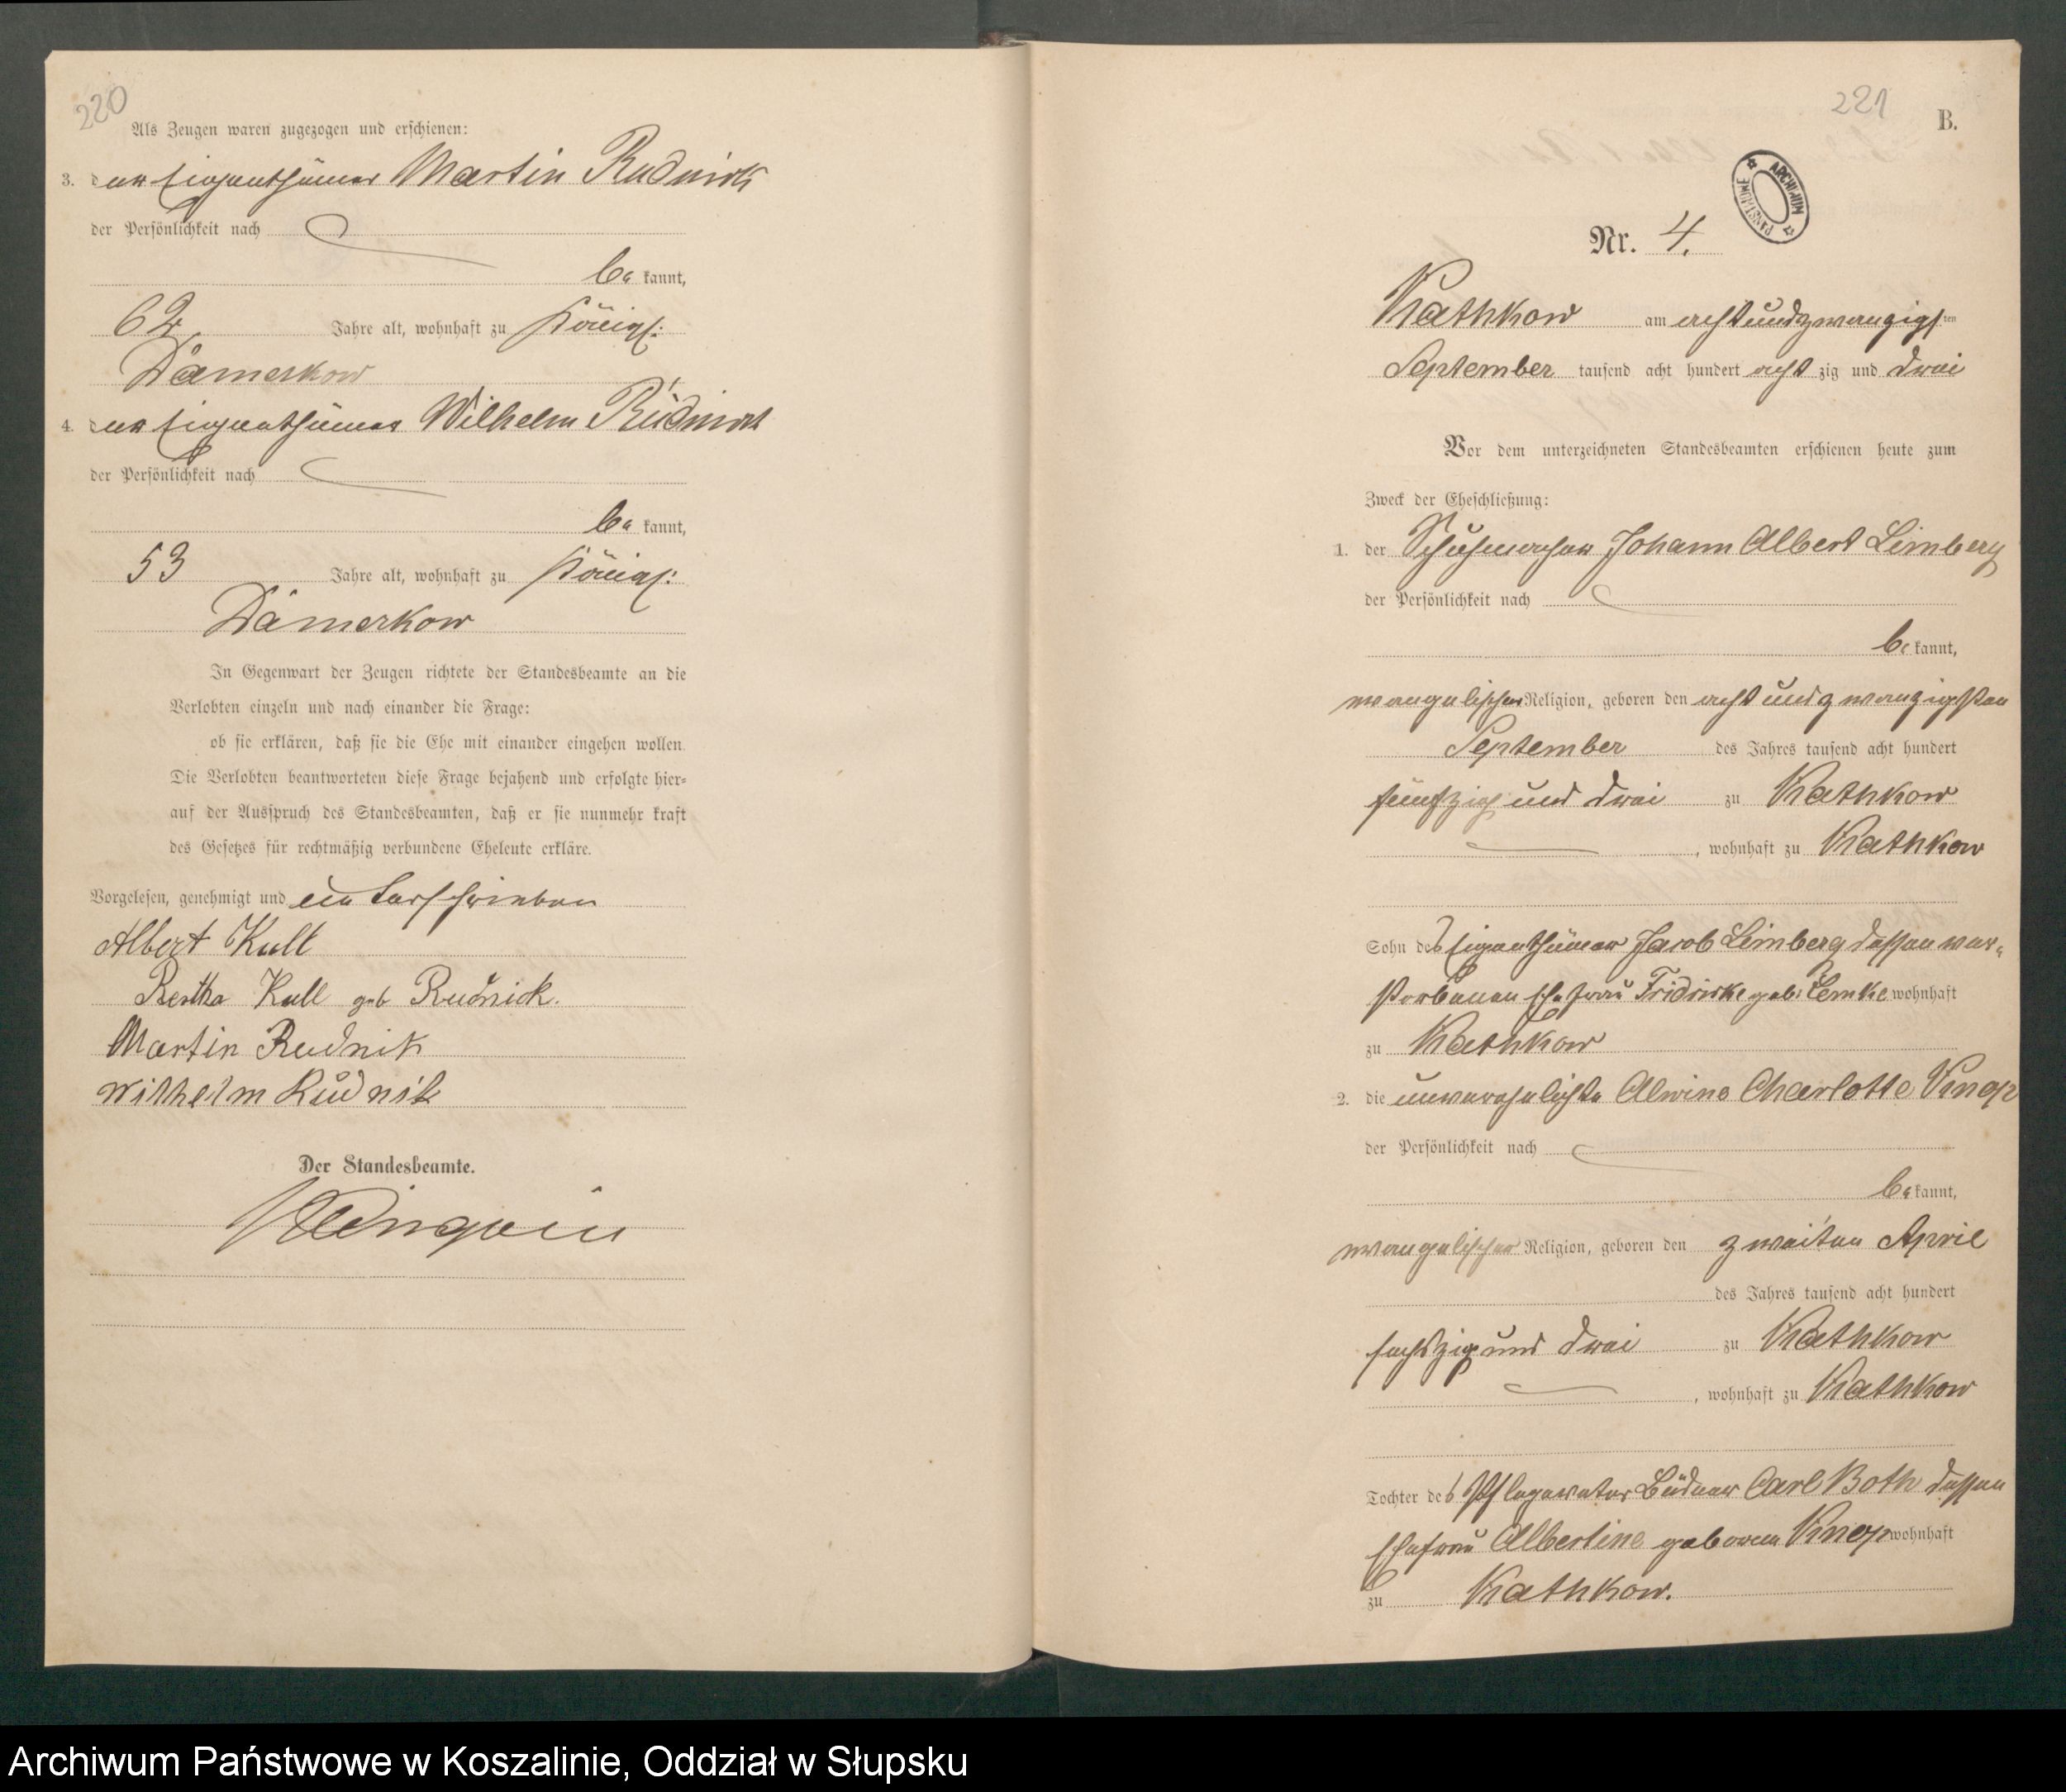 220
Als Zeugen waren zugezogen und erschienen:
3. der Eigenthümer Martin Rudnick
der Persönlichkeit nach
be kannt,
62 Jahre alt, wohnhaft zu Königl:
Damerkow
4. der Eigenthümer Wilhelm Rudnick
der Persönlichkeit nach
be kannt,
53 Jahre alt, wohnhaft zu Königl:
Damerkow
In Gegenwart der Zeugen richtete der Standesbeamte an die
Verlobten einzeln und nach einander die Frage:
ob sie erklären, daß sie die Ehe mit einander eingehen wollen.
Die Verlobten beantworteten diese Frage bejahend und erfolgte hier-
auf der Ausspruch des Standesbeamten, daß er sie nunmehr kraft
des Gesetzes für rechtmäßig verbundene Eheleute erkläre.
Vorgelesen, genehmigt und unterschrieben
Albert Kull
Bertha Kull geb Rudnick.
Martin Rudnik
Wilhelm Rudnik
Der Standesbeamte.
221
B.
ARCHIWUM PAŃSTWOWE
Nr. 4.
Kathkow am achtundzwanzigsten
September tausend acht hundert acht zig und drei
Vor dem unterzeichneten Standesbeamten erschienen heute zum
Zweck der Eheschließung:
1. der Schuhmacher Johann Albert Limberg
der Persönlichkeit nach
be kannt,
evangelischer Religion, geboren den achtundzwanzigsten
September des Jahres tausend acht hundert
fünfzig und drei zu Kathkow
, wohnhaft zu Kathkow
Sohn des Eigenthümer Jacob Limberg dessen ver-
storbenen Ehefrau Fridrike geb: Lemke wohnhaft
zu Kathkow
2. die unverehelichte Alwine Charlotte Knop
der Persönlichkeit nach
be kannt,
evangelischer Religion, geboren den zweiten April
des Jahres tausend acht hundert
sechszig und drei zu Kathkow
, wohnhaft zu Kathkow
Tochter des Pflegevater Büdner Carl Both dessen
Ehefrau Albertine geboren Knop wohnhaft
zu Kathkow.
Archiwum Państwowe w Koszalinie, Oddział w Słupsku